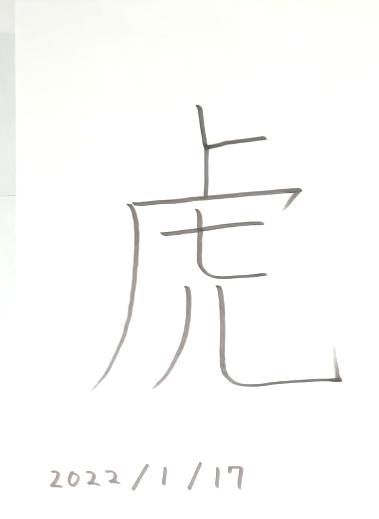 虎
2022/1/17